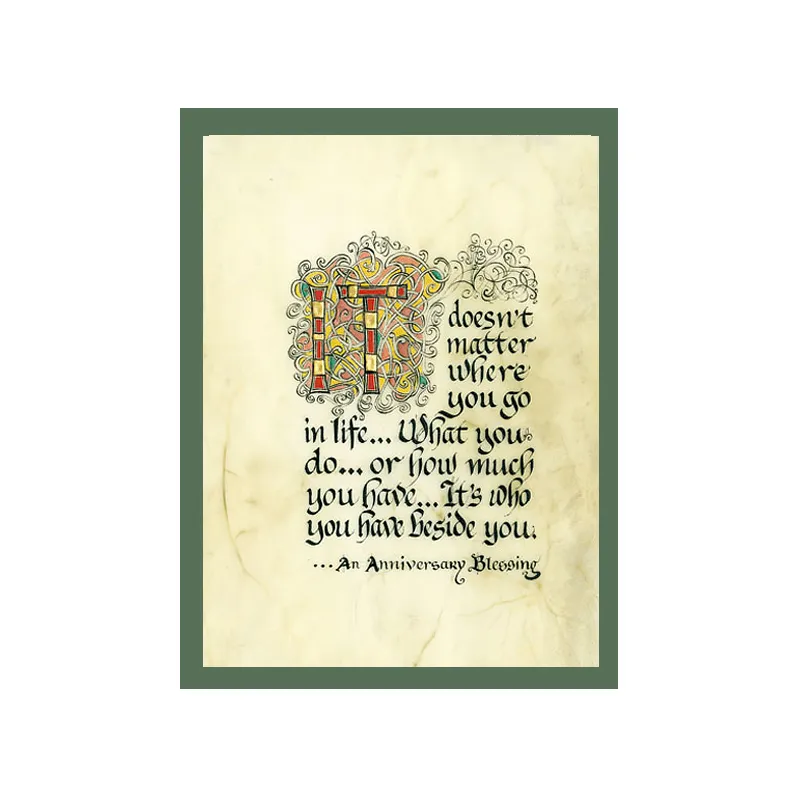 IT
doesn't
matter
where
you go
in life... What you
do... or how much
you have... It's who
you have beside you.
...An Anniversary Blessing